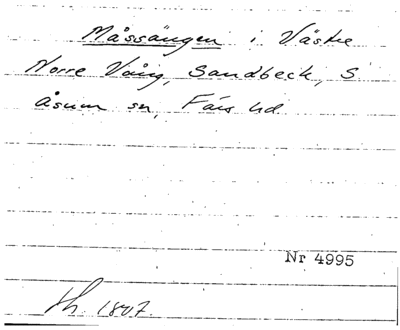 Måssängen i Västre
Norre Vång, Sandbeck, S
Åsum sn, Färs hd
Nr 4995
1807.